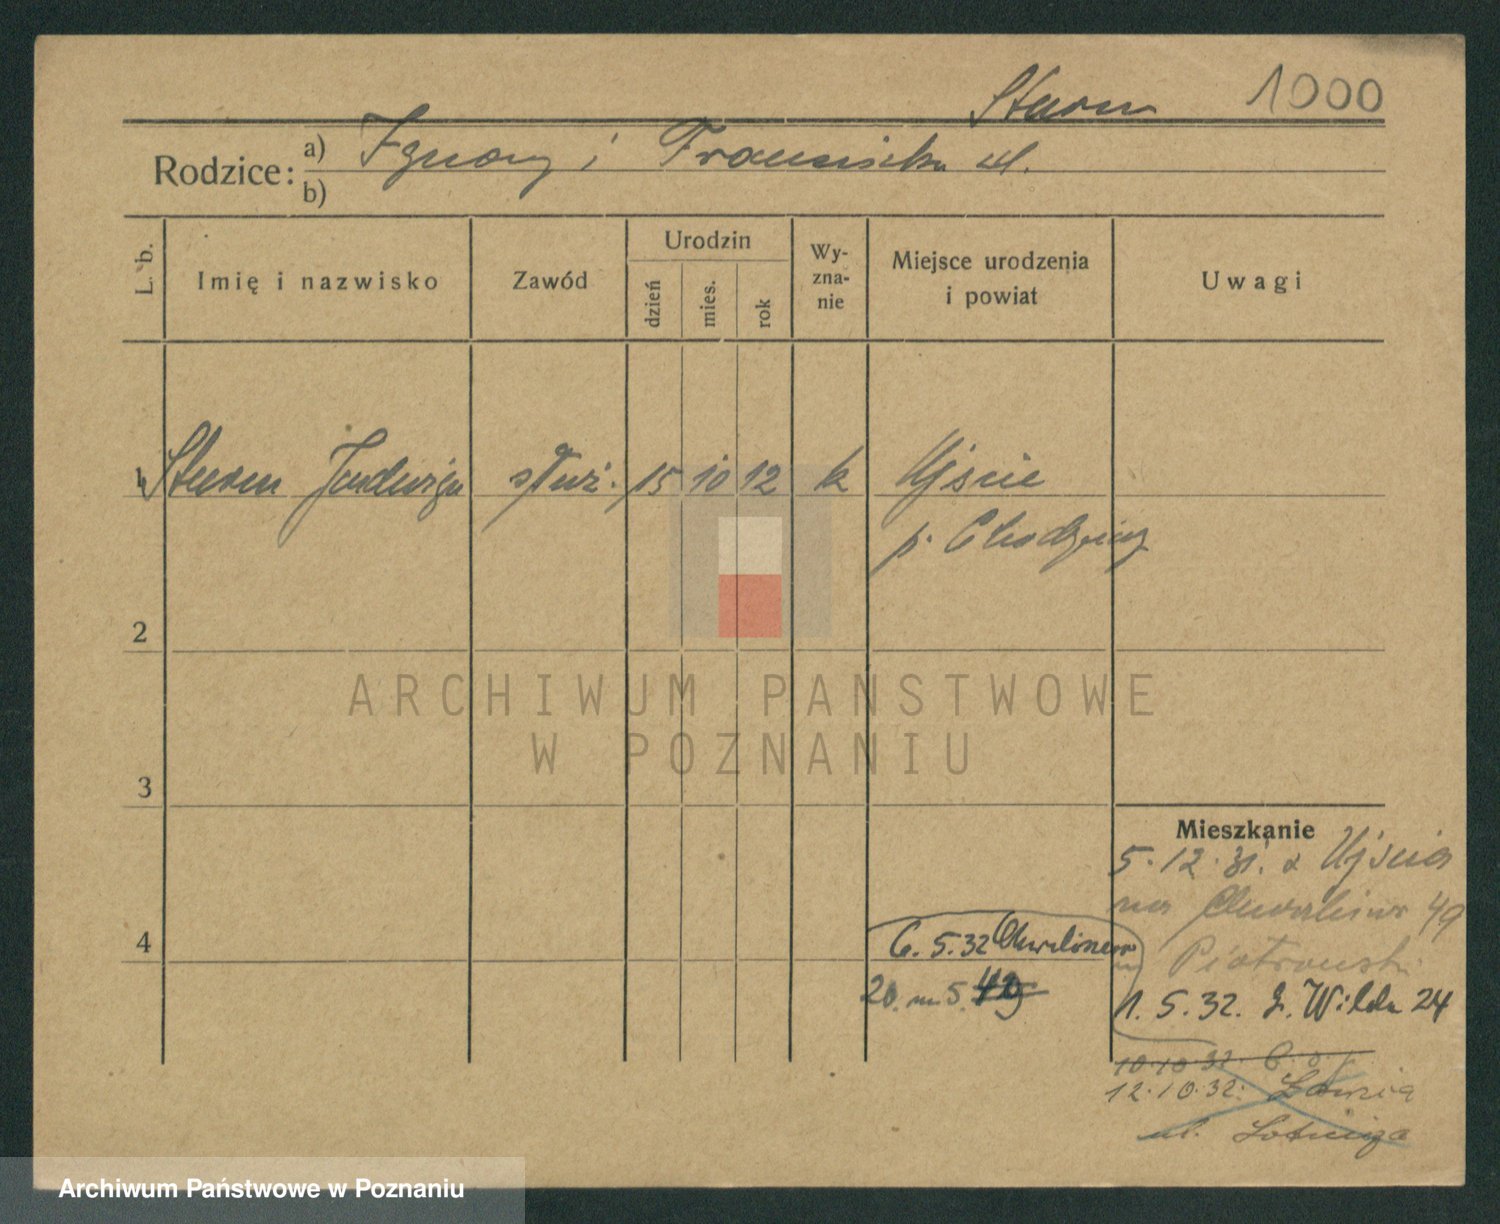 Sturm 1000
Rodzice: a) Ignacy i Franciszka
b)
L. b.
Imię i nazwisko
Zawód
Urodzin
dzień
mies.
rok
Wy-
zna-
nie
Miejsce urodzenia
i powiat
Uwagi
1 Sturm Jadwiga służ. 15 10 12 k Ujście
p. Chodzież
2
ARCHIWUM PAŃSTWOWE
W POZNANIU
3
Mieszkanie
5.12.31. z Ujścia
na 49
Piotrowski
4
6.5.32
20. m 5.
1.5.32. G. Wilda 24
10.10.32.
12.10.32.
ul. Lotnicza
Archiwum Państwowe w Poznaniu